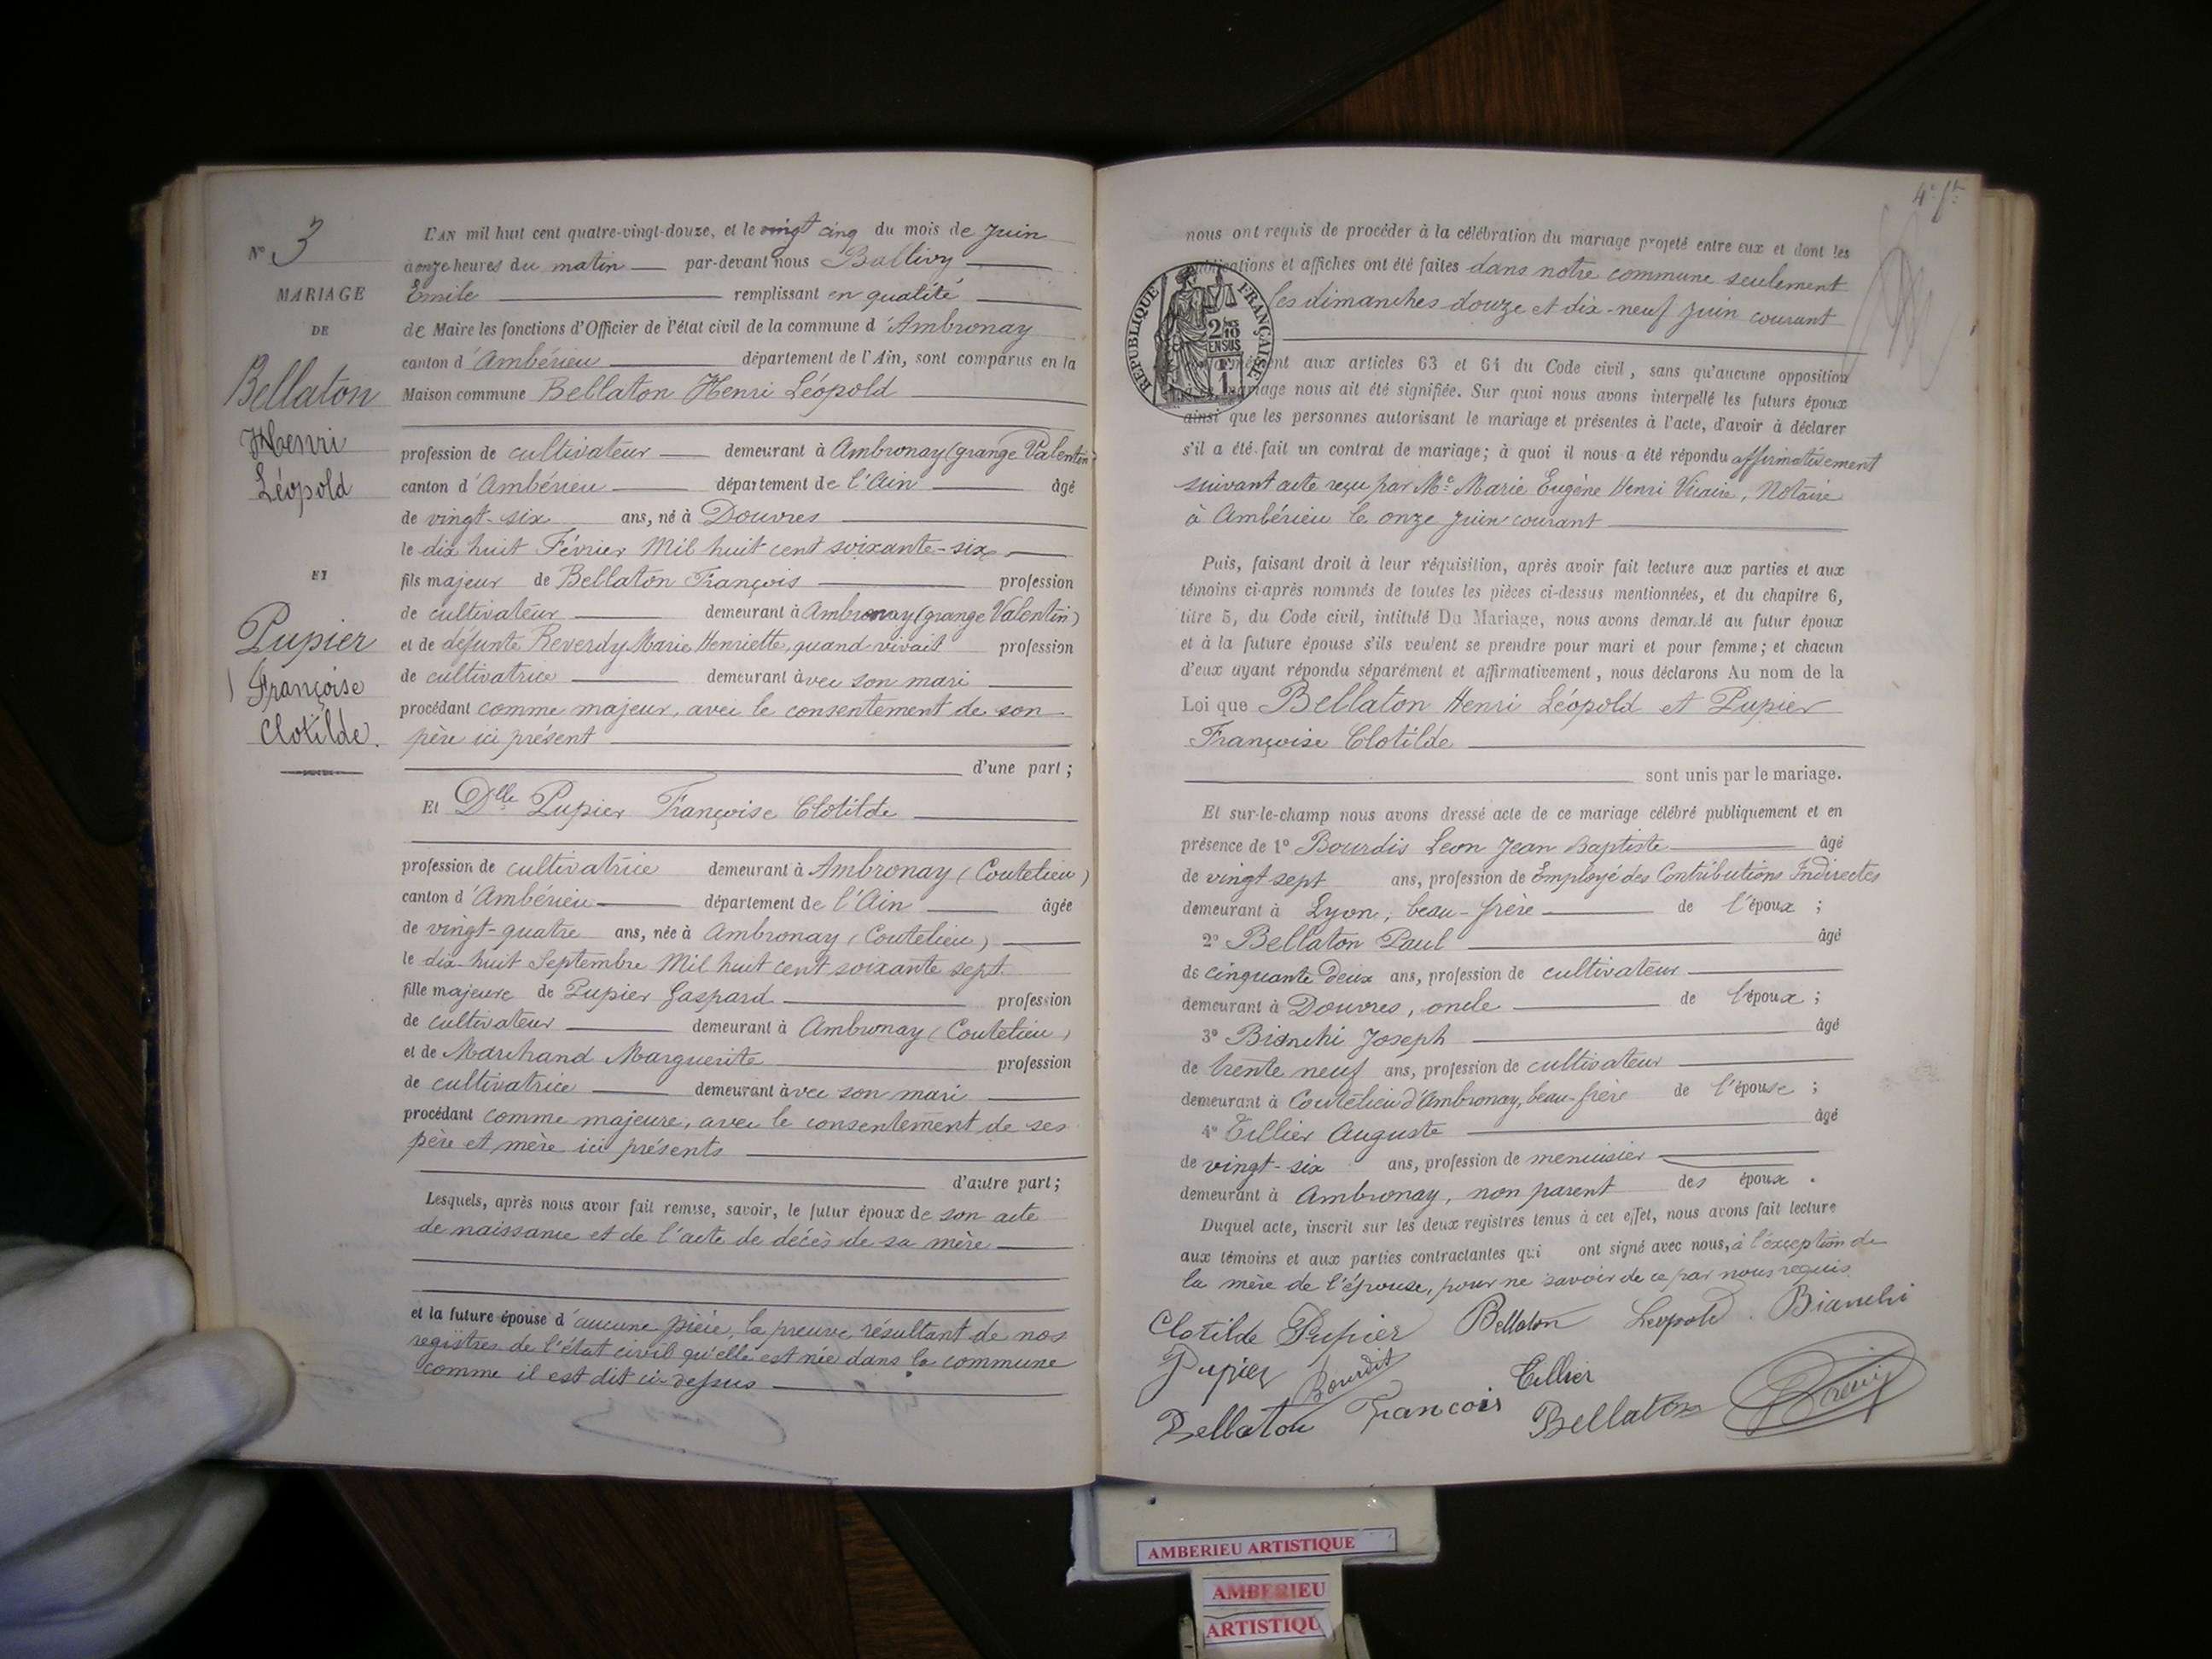 N° 3
MARIAGE
DE
Bellaton
Henri
Léopold
ET
Pupier
Françoise
Clotilde.
L'AN mil huit cent quatre-vingt-douze, et le vingt cinq du mois de Juin
à onze heures du matin par-devant nous Ballivy
Emile remplissant en qualité
de Maire les fonctions d'Officier de l'état civil de la commune d'Ambronay
canton d'Ambérieu département de l'Ain, sont comparus en la
Maison commune Bellaton Henri Léopold
profession de cultivateur demeurant à Ambronay (grange Valentin)
canton d'Ambérieu département de l'Ain âgé
de vingt-six ans, né à Douvres
le dix huit Février Mil huit cent soixante-six
fils majeur de Bellaton François profession
de cultivateur demeurant à Ambronay (grange Valentin)
et de défunte Reverdy Marie Henriette, quand vivait profession
de cultivatrice demeurant avec son mari
procédant comme majeur, avec le consentement de son
père ici présent
d'une part ;
Et Dlle Pupier Françoise Clotilde
profession de cultivatrice demeurant à Ambronay (Coutelieu)
canton d'Ambérieu département de l'Ain âgée
de vingt-quatre ans, née à Ambronay (Coutelieu)
le dix-huit Septembre Mil huit cent soixante sept
fille majeure de Pupier Gaspard profession
de cultivateur demeurant à Ambronay (Coutelieu)
et de Marchand Marguerite profession
de cultivatrice demeurant avec son mari
procédant comme majeure, avec le consentement de ses
père et mère ici présents
d'autre part ;
Lesquels, après nous avoir fait remise, savoir, le futur époux de son acte
de naissance et de l'acte de décès de sa mère
et la future épouse d'aucune pièce, la preuve résultant de nos
registres de l'état civil qu'elle est née dans la commune
comme il est dit ci-dessus
4e ft
nous ont requis de procéder à la célébration du mariage projeté entre eux et dont les
publications et affiches ont été faites dans notre commune seulement
les dimanches douze et dix-neuf Juin courant
RÉPUBLIQUE FRANÇAISE
2/10 EN SUS
1
aux articles 63 et 64 du Code civil, sans qu'aucune opposition
mariage nous ait été signifiée. Sur quoi nous avons interpellé les futurs époux
ainsi que les personnes autorisant le mariage et présentes à l'acte, d'avoir à déclarer
s'il a été fait un contrat de mariage ; à quoi il nous a été répondu affirmativement
suivant acte reçu par Me Marie Eugène Henri Vicaire, Notaire
à Ambérieu le onze Juin courant
Puis, faisant droit à leur réquisition, après avoir fait lecture aux parties et aux
témoins ci-après nommés de toutes les pièces ci-dessus mentionnées, et du chapitre 6,
titre 5, du Code civil, intitulé Du Mariage, nous avons demandé au futur époux
et à la future épouse s'ils veulent se prendre pour mari et pour femme ; et chacun
d'eux ayant répondu séparément et affirmativement, nous déclarons Au nom de la
Loi que Bellaton Henri Léopold et Pupier
Françoise Clotilde
sont unis par le mariage.
Et sur-le-champ nous avons dressé acte de ce mariage célébré publiquement et en
présence de 1° Bourdis Leon Jean Baptiste âgé
de vingt sept ans, profession de Employé des Contributions Indirectes
demeurant à Lyon, beau-frère de l'époux ;
2° Bellaton Paul âgé
de cinquante deux ans, profession de cultivateur
demeurant à Douvres, oncle de l'époux ;
3° Bianchi Joseph âgé
de trente neuf ans, profession de cultivateur
demeurant à Coutelieu d'Ambronay, beau-frère de l'épouse ;
4° Tillier Auguste âgé
de vingt-six ans, profession de menuisier
demeurant à Ambronay, non parent des époux.
Duquel acte, inscrit sur les deux registres tenus à cet effet, nous avons fait lecture
aux témoins et aux parties contractantes qui ont signé avec nous, à l'exception de
la mère de l'épouse, pour ne savoir de ce par nous requis.
Clotilde Pupier Bellaton Leopold. Bianchi
Pupier Bourdit Tillier
Bellaton François Bellaton
AMBERIEU ARTISTIQUE
AMBERIEU
ARTISTIQU